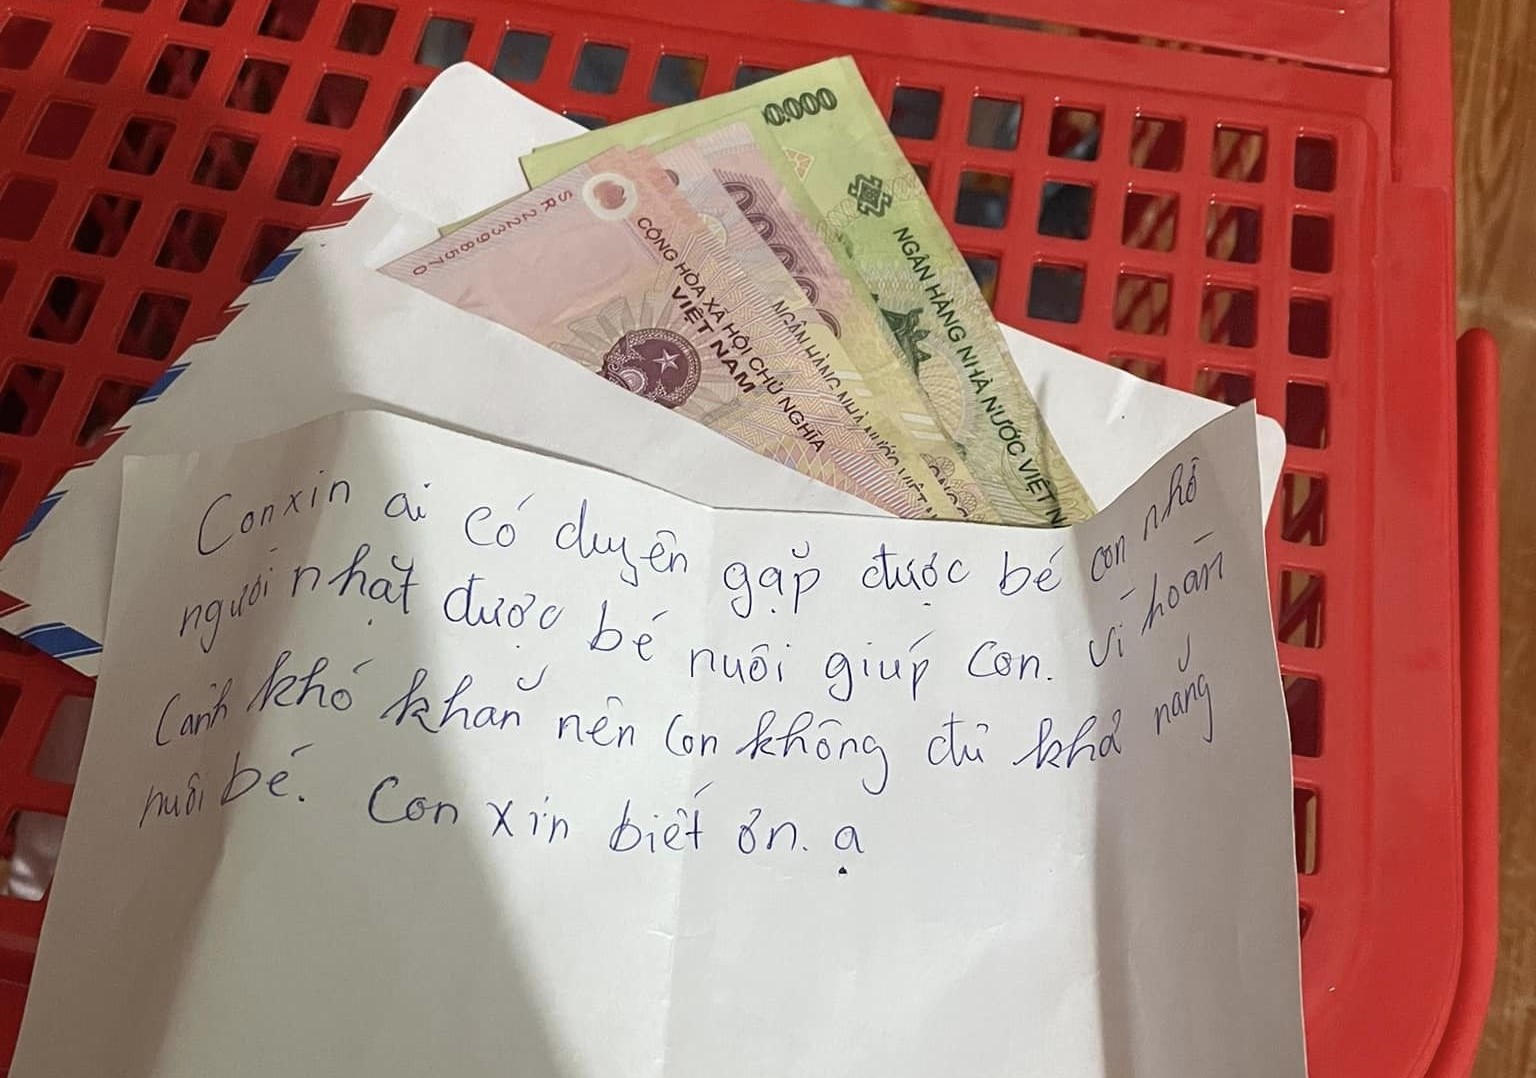 0.000
NGÂN HÀNG NHÀ NƯỚC VIỆT N
SR 2239870
CỘNG HÒA XÃ HỘI CHỦ NGHĨA
VIỆT NAM
NGÂN HÀNG NHÀ NƯỚC VIỆT
Con xin ai có duyên gặp được bé con nhờ
người nhặt được bé nuôi giúp con. Vì hoàn
cảnh khó khăn nên con không đủ khả năng
nuôi bé. Con xin biết ơn. ạ